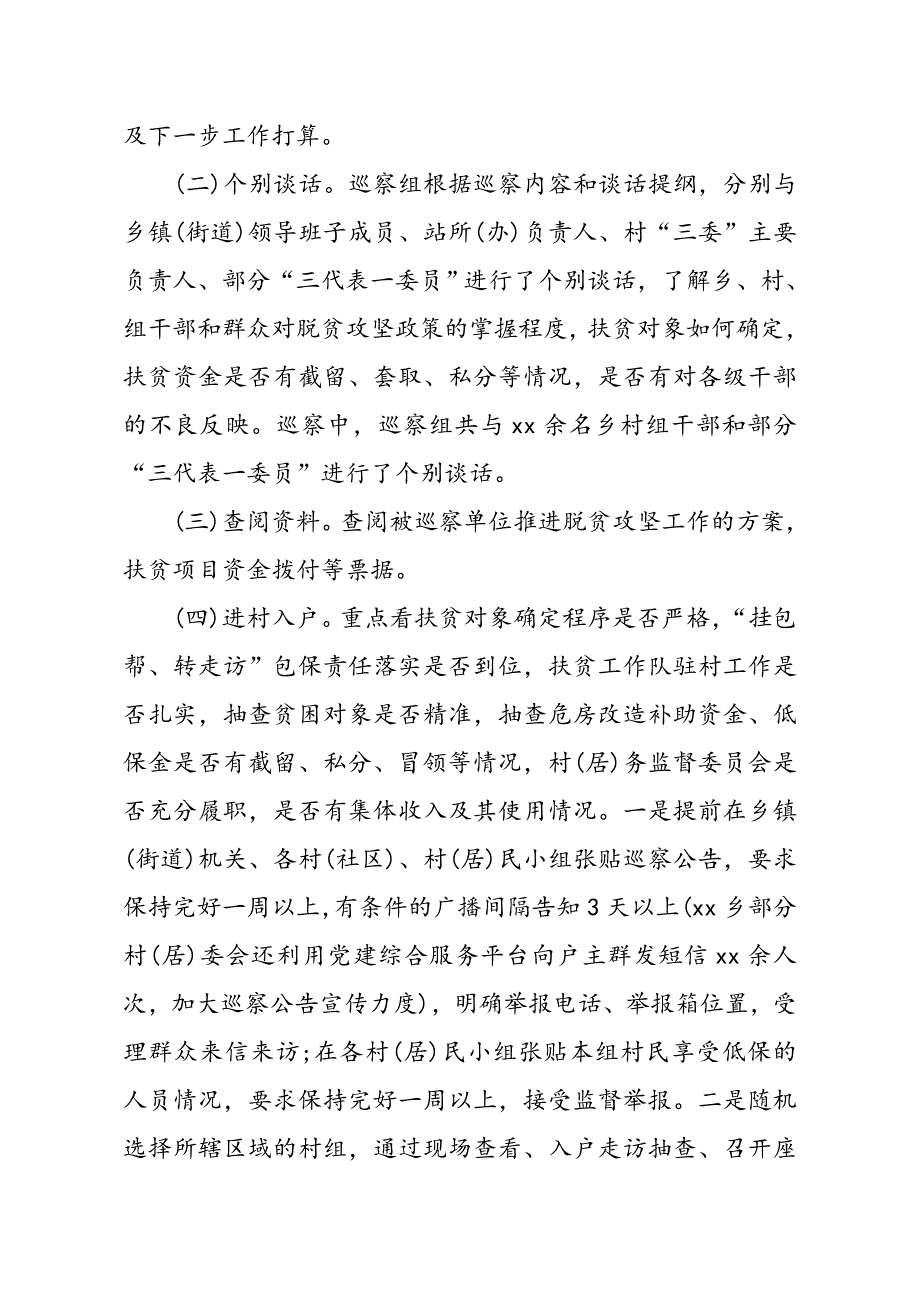 及下一步工作打算。
(二)个别谈话。巡察组根据巡察内容和谈话提纲，分别与
乡镇(街道)领导班子成员、站所(办)负责人、村“三委”主要
负责人、部分“三代表一委员”进行了个别谈话，了解乡、村、
组干部和群众对脱贫攻坚政策的掌握程度，扶贫对象如何确定，
扶贫资金是否有截留、套取、私分等情况，是否有对各级干部
的不良反映。巡察中，巡察组共与 xx 余名乡村组干部和部分
“三代表一委员”进行了个别谈话。
(三)查阅资料。查阅被巡察单位推进脱贫攻坚工作的方案，
扶贫项目资金拨付等票据。
(四)进村入户。重点看扶贫对象确定程序是否严格，“挂包
帮、转走访”包保责任落实是否到位，扶贫工作队驻村工作是
否扎实，抽查贫困对象是否精准，抽查危房改造补助资金、低
保金是否有截留、私分、冒领等情况，村(居)务监督委员会是
否充分履职，是否有集体收入及其使用情况。一是提前在乡镇
(街道)机关、各村(社区)、村(居)民小组张贴巡察公告，要求
保持完好一周以上,有条件的广播间隔告知 3 天以上(xx 乡部分
村(居)委会还利用党建综合服务平台向户主群发短信 xx 余人
次，加大巡察公告宣传力度)，明确举报电话、举报箱位置，受
理群众来信来访;在各村(居)民小组张贴本组村民享受低保的
人员情况，要求保持完好一周以上，接受监督举报。二是随机
选择所辖区域的村组，通过现场查看、入户走访抽查、召开座